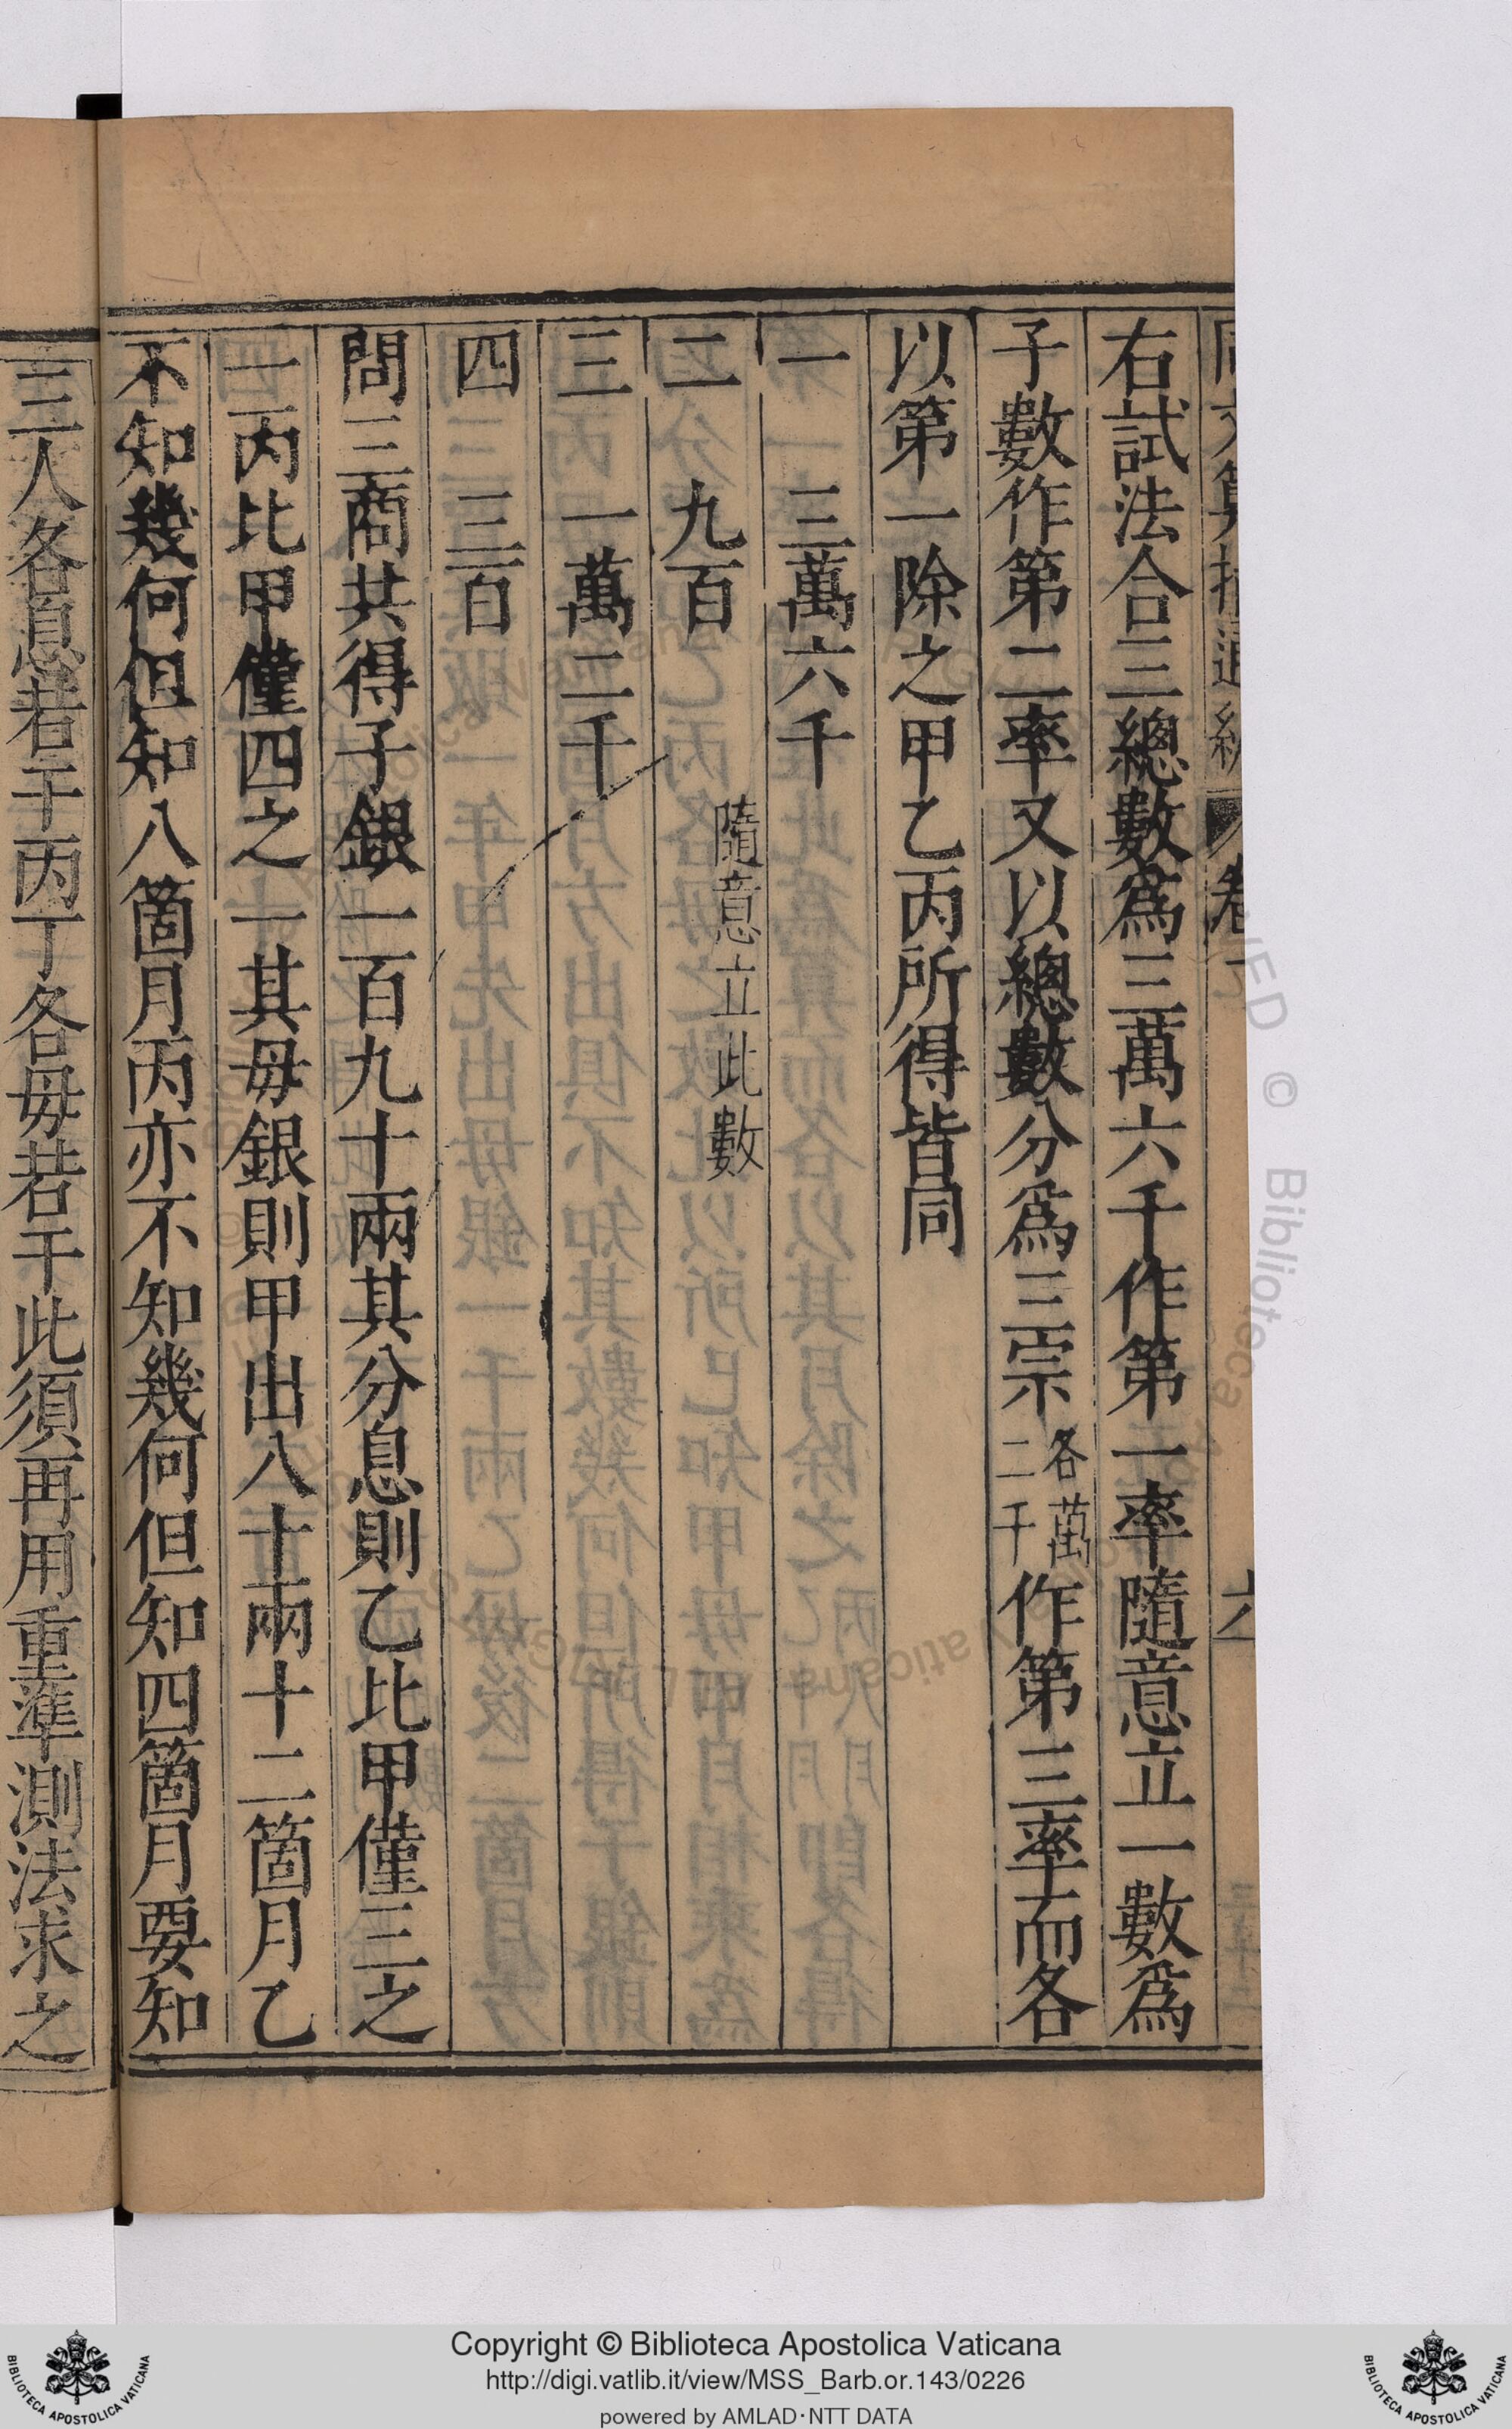 右試法合三總數爲三萬六千作第一率隨意立一數爲
子數作第二率又以總數分爲三宗各萬二千作第三率而各
以第一除之甲乙丙所得皆同
一 三萬六千
二 九百 隨意立此數
三 一萬二千
四 三百
問三商共得子銀一百九十兩其分息則乙比甲僅三之
一丙比甲僅四之一其毋銀則甲出八十兩十二箇月乙
不知幾何但知八箇月丙亦不知幾何但知四箇月要知
三人各息若干丙丁各毋若干此須再用重準測法求之
Copyright © Biblioteca Apostolica Vaticana
http://digi.vatlib.it/view/MSS_Barb.or.143/0226
powered by AMLAD·NTT DATA
BIBLIOTECA APOSTOLICA VATICANA
BIBLIOTECA APOSTOLICA VATICANA